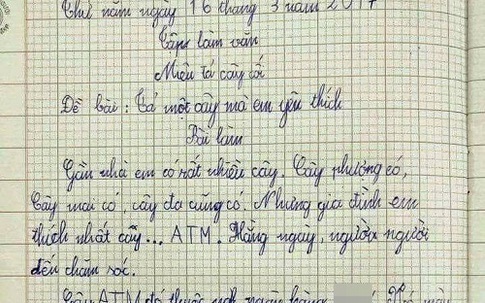 Thứ năm ngày 16 tháng 3 năm 2017
Tập làm văn
Miêu tả cây cối
Đề bài : Tả một cây mà em yêu thích
Bài làm
Gần nhà em có rất nhiều cây. Cây phượng có,
cây mai có, cây đa cũng có. Nhưng gia đình em
thích nhất cây... ATM. Hằng ngày, người người
đến chăm sóc.
Cây ATM đó thuộc ngân hàng